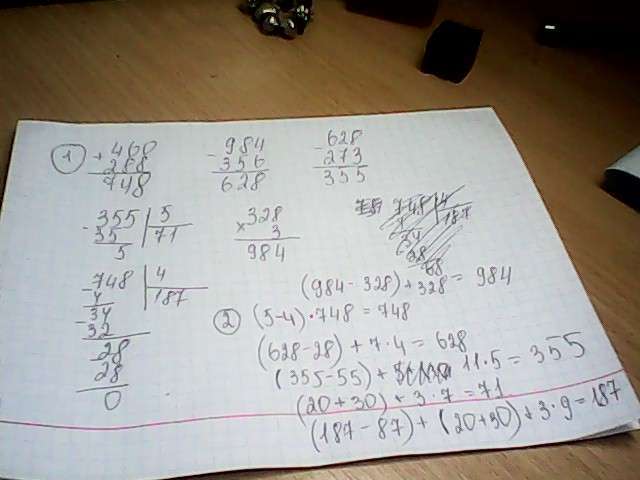 1
+ 460
288
748
- 984
356
628
- 628
273
355
- 355 | 5
55 | 71
5
× 328
3
984
748 | 4
187
- 748 | 4
4 | 187
- 34
32
- 28
28
0
(984 - 328) + 328 = 984
2 (5-4) · 748 = 748
(628 - 28) + 7 · 4 = 628
(355 - 55) + 11 · 5 = 355
(20 + 30) + 3 · 7 = 71
(187 - 87) + (20+30) + 3 · 9 = 187